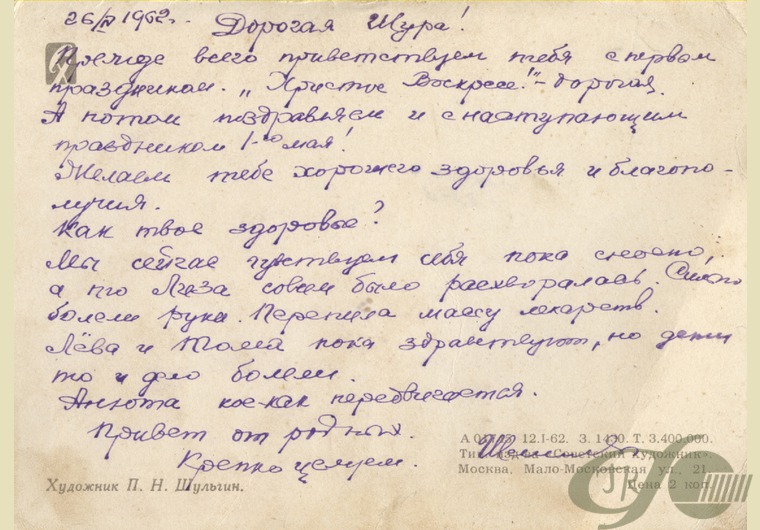 26/IV 1962 г. Дорогая Шура!
Прежде всего приветствуем тебя с первым
праздником. „Христос Воскресе!" - дорогая.
А потом поздравляем и с наступающим
праздником 1-го мая!
Желаем тебе хорошего здоровья и благопо-
лучия.
Как твое здоровье?
Мы сейчас чувствуем себя пока сносно,
а то Лиза совсем было расхворалась. Сильно
болели руки. Перепила массу лекарств.
Лёва и Толей пока здравствуют, но дети
то и дело болели.
Анюта кое-как передвигается.
Привет от родных.
Крепко целуем.
12.I-62. З. 1430. Т. 3.400.000.
«Советский художник».
Москва, Мало-Московская ул., 21.
Цена 2 коп.
Художник П. Н. Шульгин.